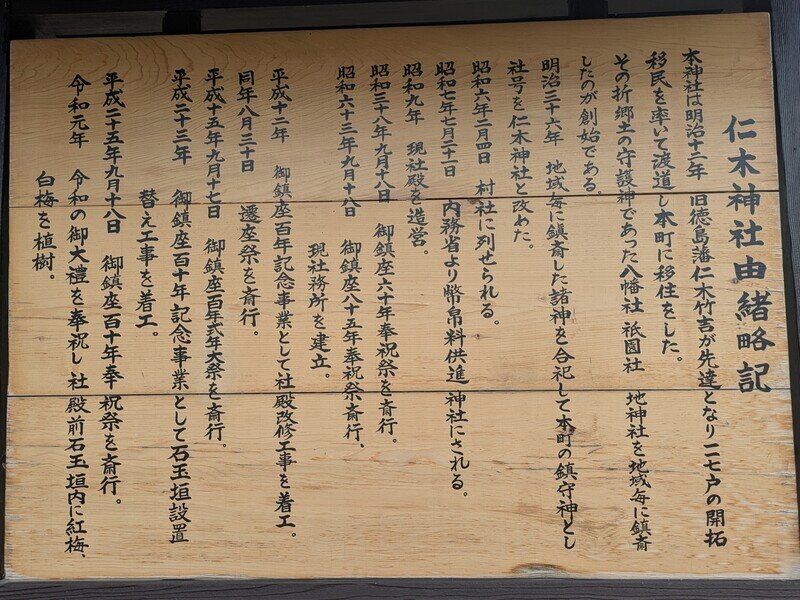 仁木神社由緒略記
本神社は明治十二年　旧徳島藩仁木竹吉が先達となり一七戸の開拓
移民を率いて渡道し本町に移住をした。
その折郷土の守護神であった八幡社　祇園社　地神社を地域毎に鎮斎
したのが創始である。
明治三十六年　地域毎に鎮斎した諸神を合祀して本町の鎮守神とし
社号を仁木神社と改めた。
昭和六年二月四日　村社に列せられる。
昭和七年七月二十一日　内務省より幣帛料供進神社にされる。
昭和九年　現社殿を造営。
昭和三十八年九月十八日　御鎮座六十年奉祝祭を斎行。
昭和六十三年九月十八日　御鎮座八十五年奉祝祭斎行、
現社務所を建立。
平成十二年　御鎮座百年記念事業として社殿改修工事を着工。
同年八月三十日　遷座祭を斎行。
平成十五年九月十七日　御鎮座百年式年大祭を斎行。
平成二十三年　御鎮座百十年記念事業として石玉垣設置
替え工事を着工。
平成二十五年九月十八日　御鎮座百十年奉祝祭を斎行。
令和元年　令和の御大禮を奉祝し社殿前石玉垣内に紅梅、
白梅を植樹。